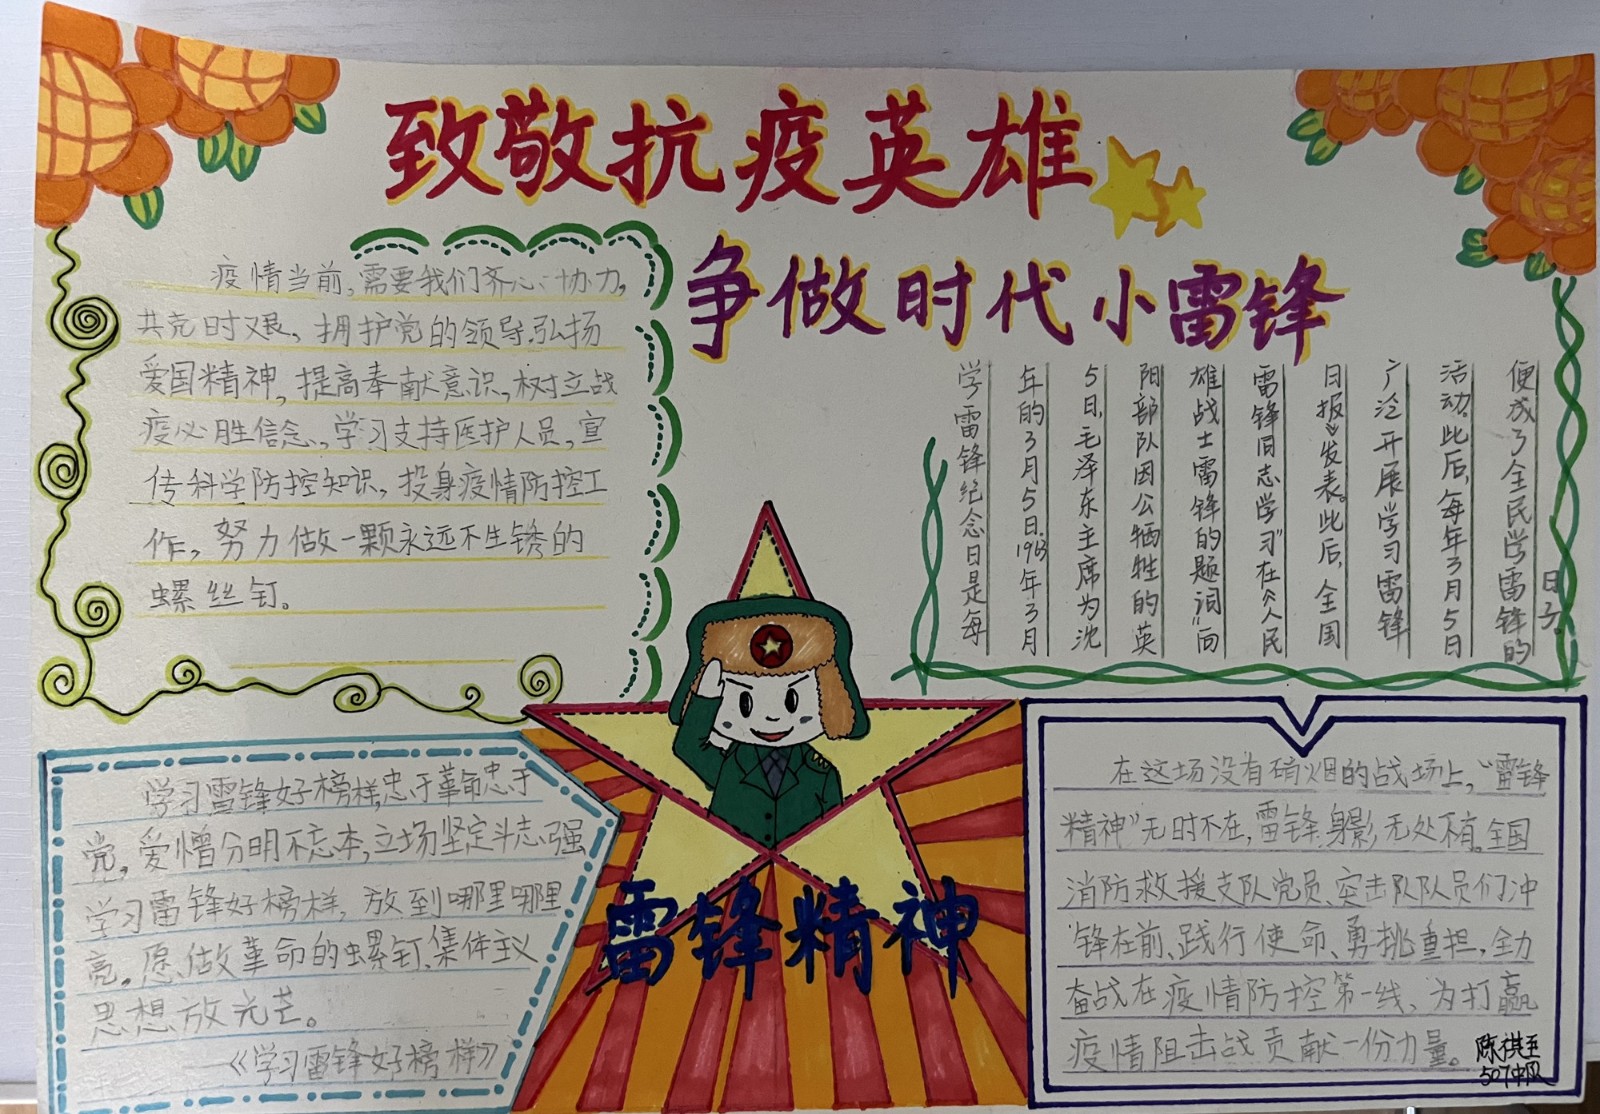 致敬抗疫英雄
争做时代小雷锋
疫情当前,需要我们齐心协力,
共克时艰,拥护党的领导.弘扬
爱国精神,提高奉献意识,树立战
疫必胜信念、学习支持医护人员,宣
传科学防控知识,投身疫情防控工
作,努力做一颗永远不生锈的
螺丝钉。
学雷锋纪念日是每
年的3月5日.1963年3月
5日,毛泽东主席为沈
阳部队因公牺牲的英
雄战士雷锋的题词“向
雷锋同志学习”在《人民
日报》发表。此后,全国
广泛开展学习雷锋
活动。此后,每年3月5日
便成了全民学雷锋的
日子。
学习雷锋好榜样,忠于革命忠于
党,爱憎分明不忘本,立场坚定斗志强
学习雷锋好榜样,放到哪里哪里
亮。愿做革命的螺钉、集体主义
思想放光芒。
——《学习雷锋好榜样》
雷锋精神
在这场没有硝烟的战场上,“雷锋
精神”无时不在,雷锋身影无处不有。全国
消防救援支队党员、突击队队员们冲
锋在前、践行使命、勇挑重担,全力
奋战在疫情防控第一线、为打赢
疫情阻击战贡献一份力量。
陈祺至
507中队